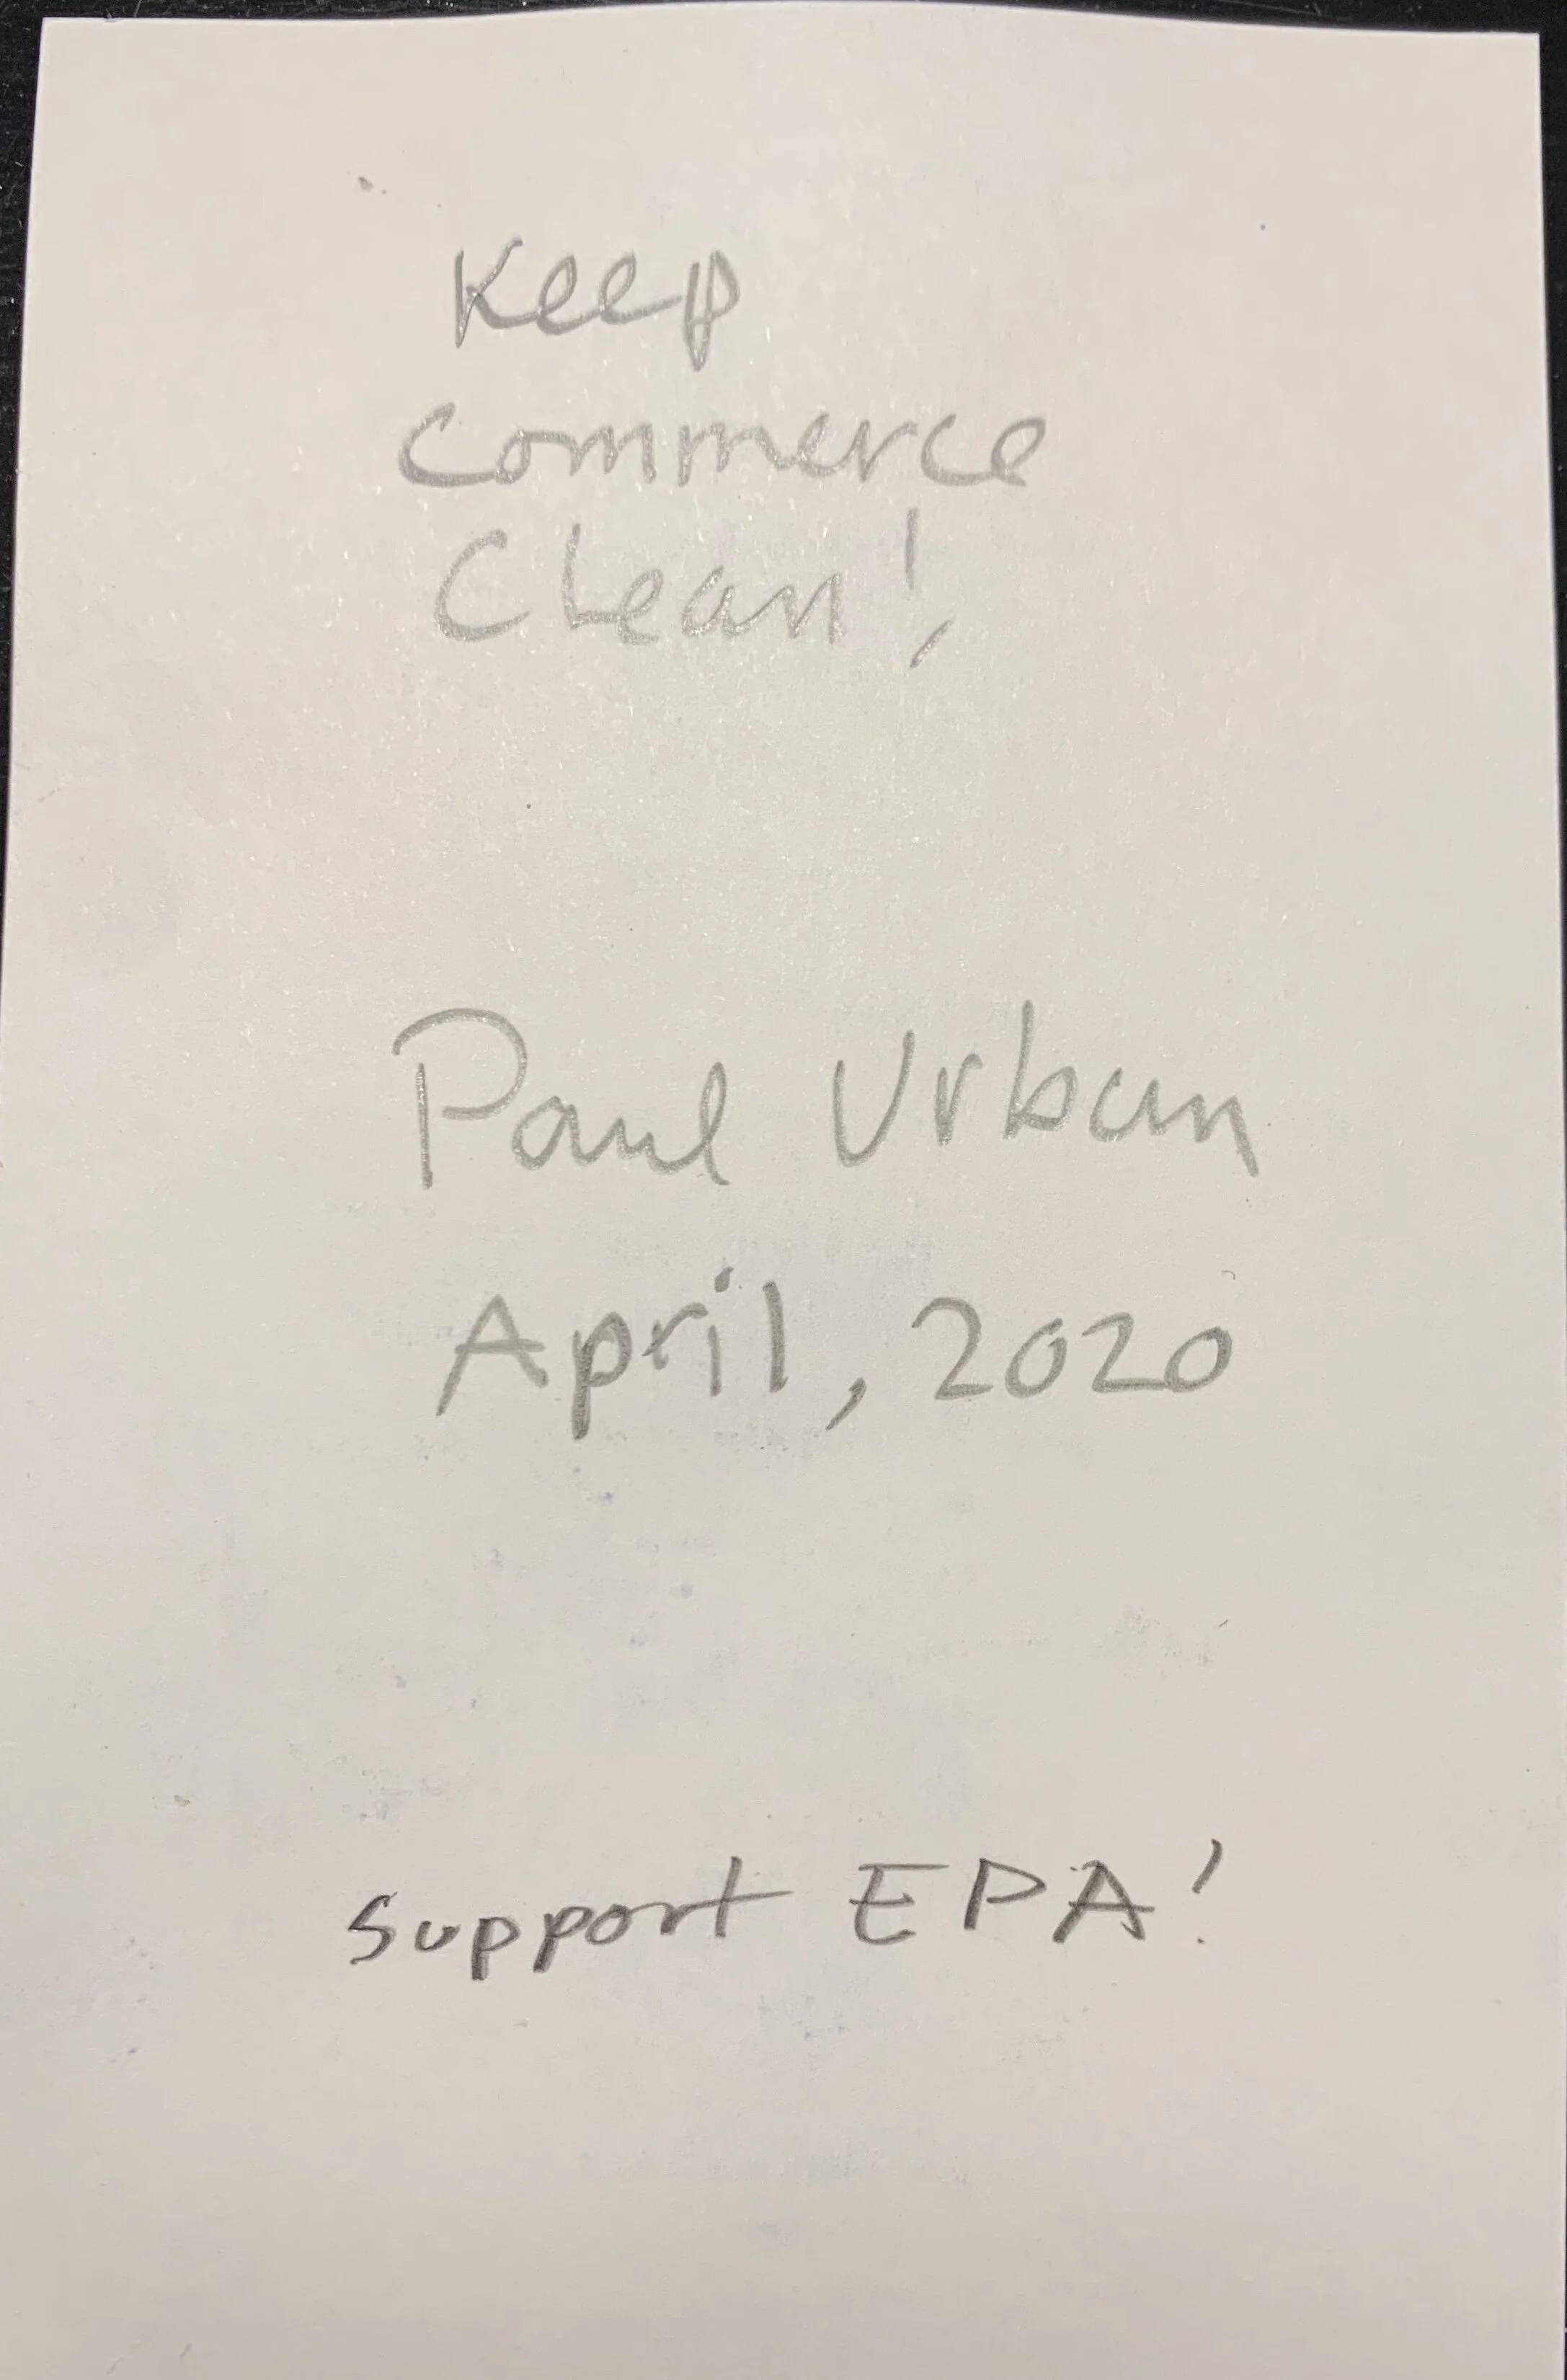 Keep
Commerce
Clean!
Paul Urban
April, 2020
Support EPA!